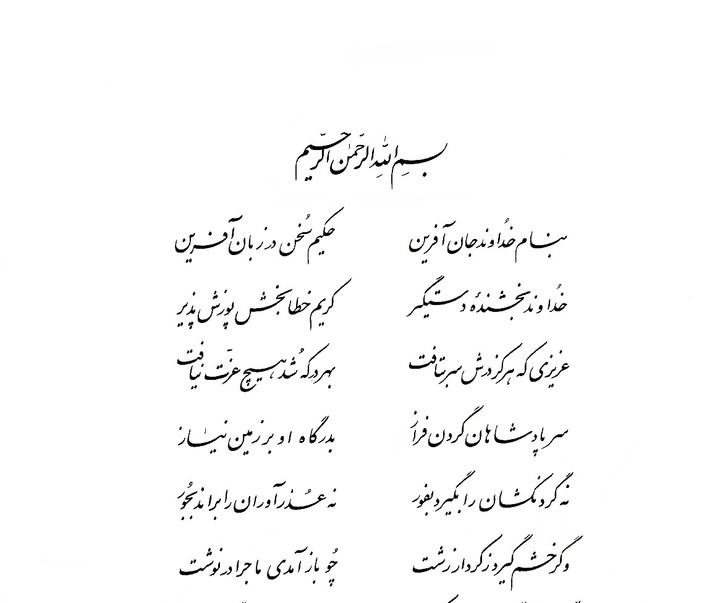 بسم الله الرحمن الرحیم
بنام خداوند جان آفرین حکیم سخن در زبان آفرین
خداوند بخشندهٔ دستگیر کریم خطابخش پوزش پذیر
عزیزی که هرکز درش سربتافت بهر در که شد هیچ عزت نیافت
سر پادشاهان گردن فراز بدرگاه او بر زمین نیاز
نه گردنکشان را بگیرد بفور نه عذرآوران را براند بجور
وگر خشم گیرد ز کردار زشت چو بازآمدی ماجرا در نوشت